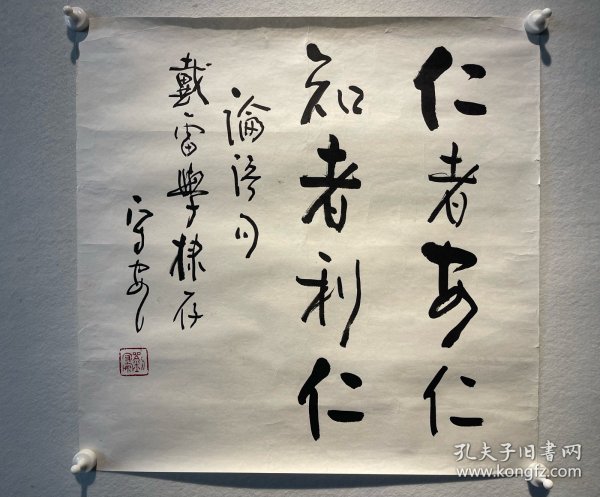 仁者安仁
知者利仁
論語句
戴雷學棣存
守安
孔夫子旧書网
www.kongfz.com